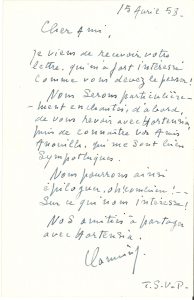 15 Avril 53.
Cher Ami,
je viens de recevoir votre
lettre, qui m'a fort intéressé
comme vous devez le penser!
Nous serons particulière-
-ment enchantés, d'abord,
de vous revoir avec Hortensia,
puis de connaître vos Amis
Anouilh, qui me sont bien
Sympathiques.
Nous pourrons ainsi
épiloguer, oh combien!--
Sur ce qui nous intéresse!
Nos amitiés à partager
avec Hortensia.
T.S.V.P.